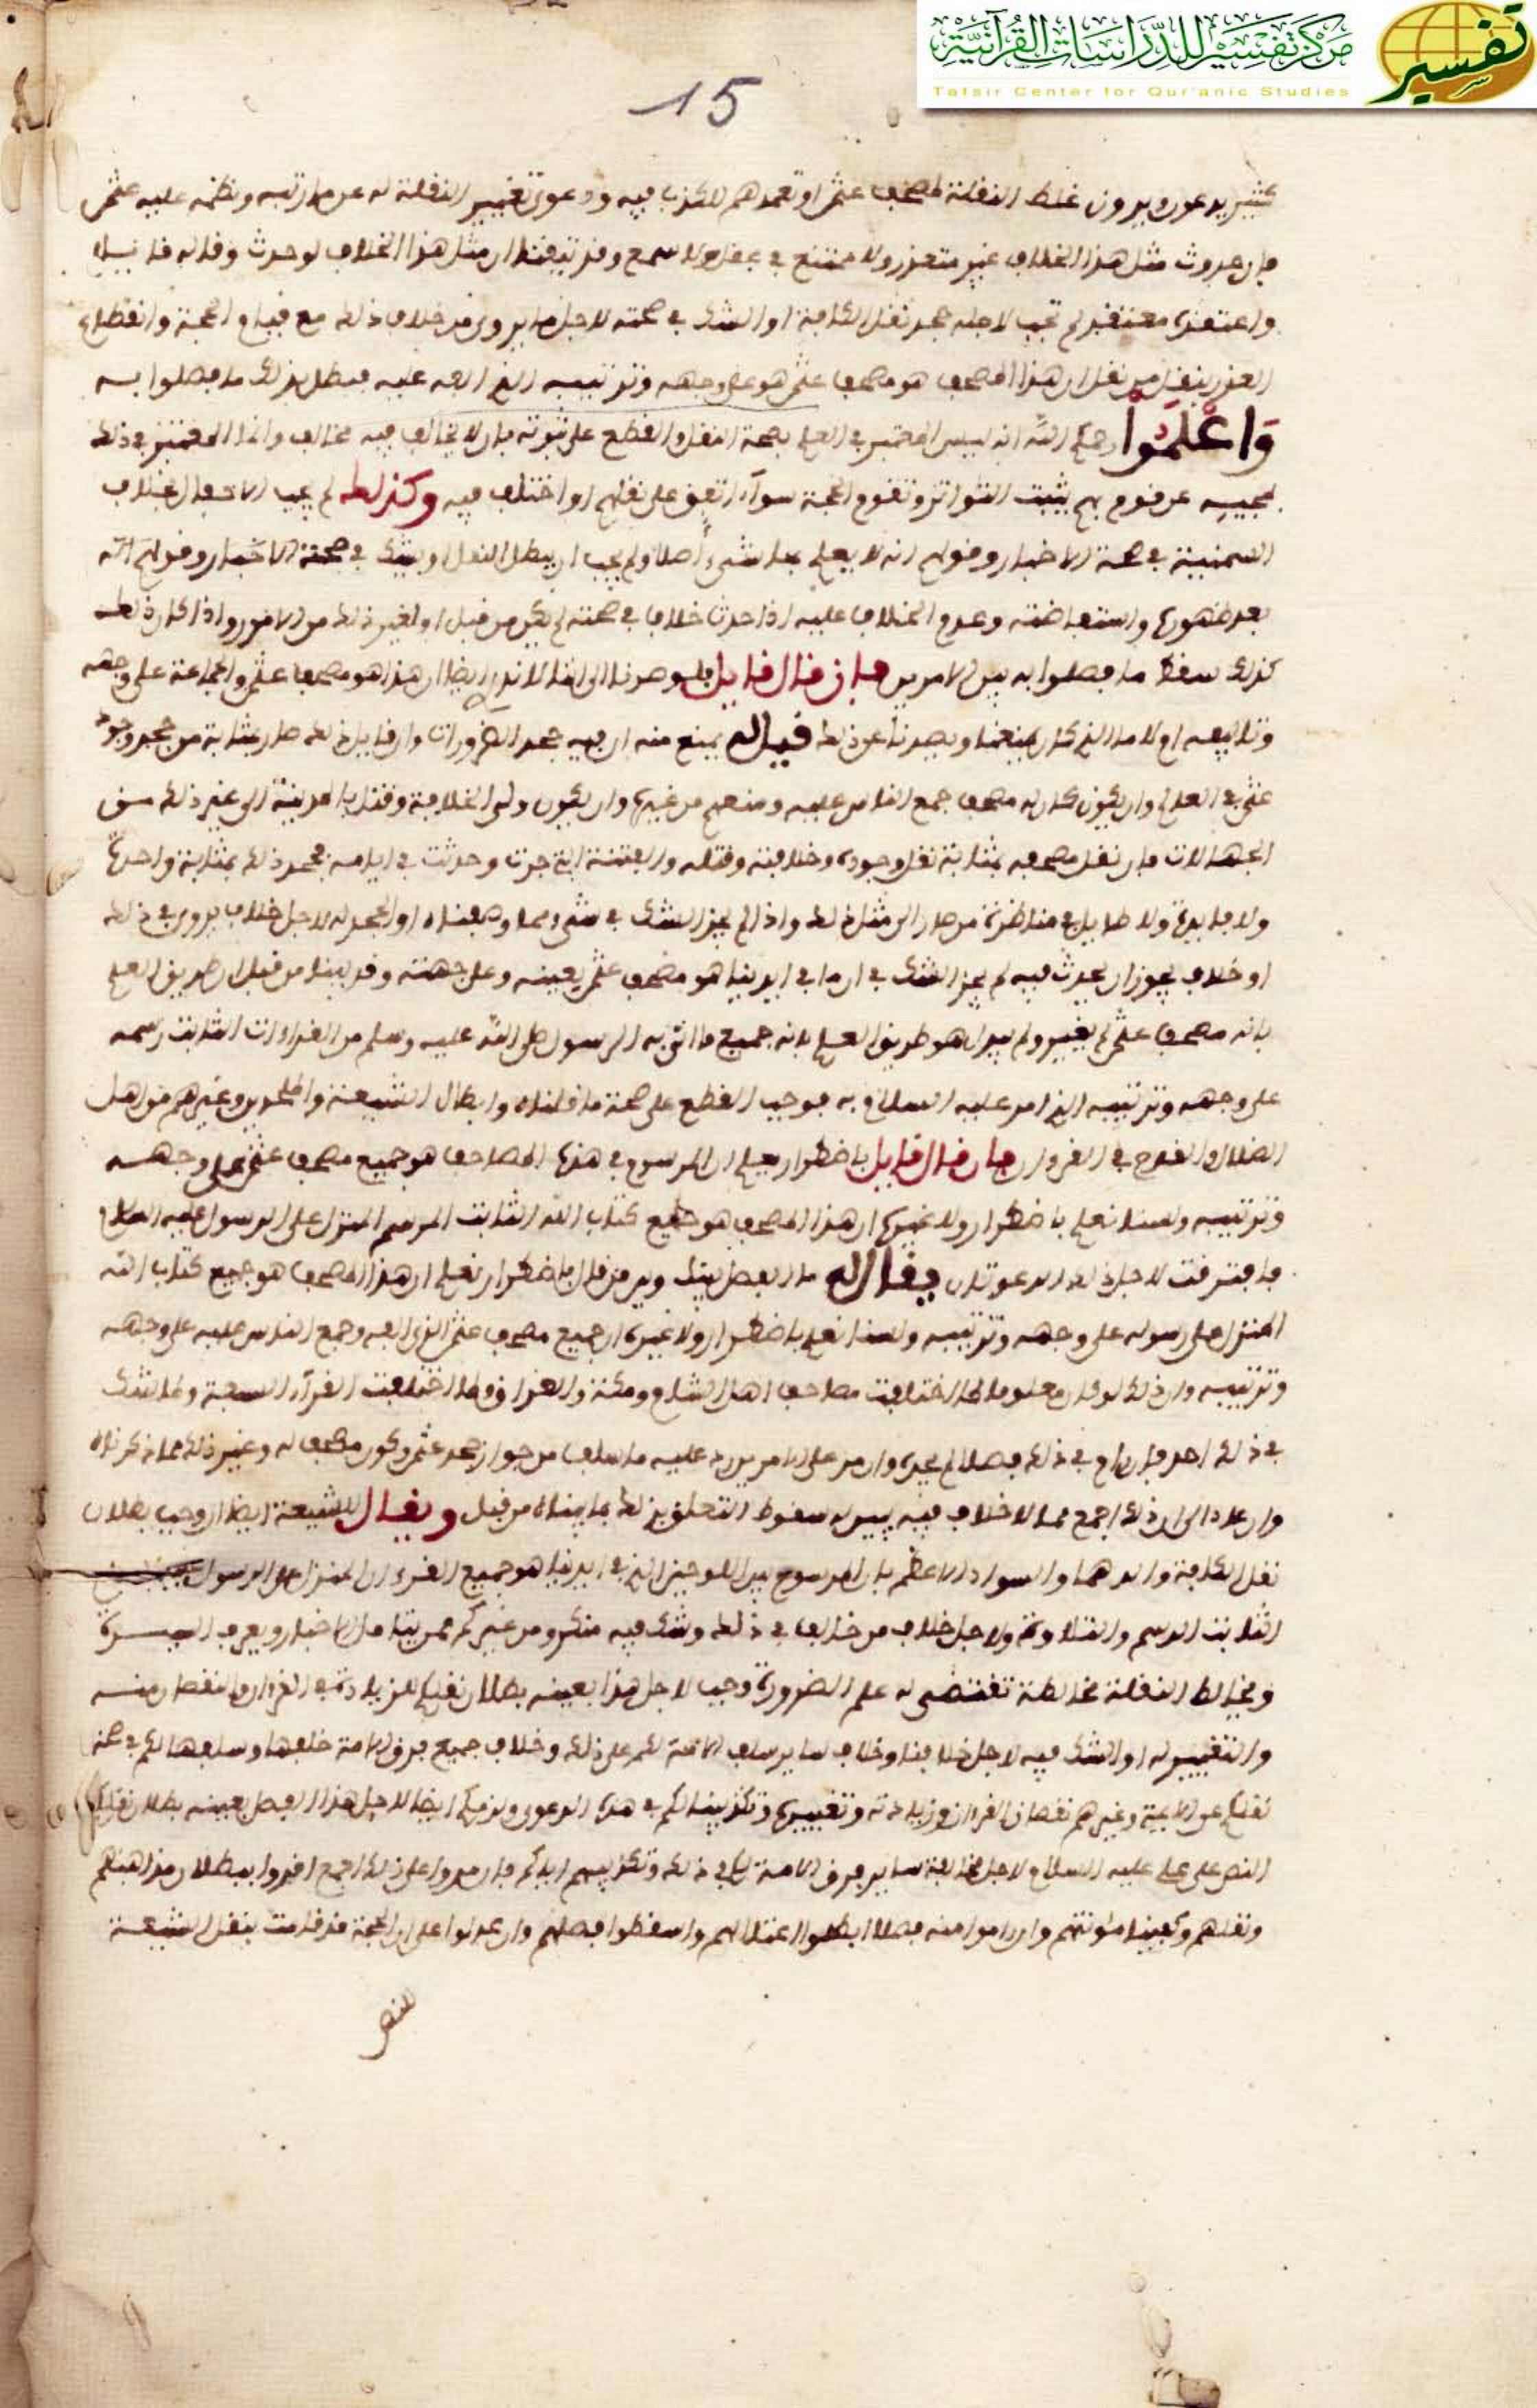 مركز تفسير للدراسات القرآنية
Tafsir Center for Qur'anic Studies
تفسير
15
كثير يدعون ويرون غلط النقلة لمصحف عثمن او تعمدهم للكذب فيه ودعوى تغيير النقلة له عن ما رتبه ونظمه عليه عثمن
فان حدوث مثل هذا الخلاف غير متعذر ولا ممتنع في عقل ولا سمع وقد تيقنا ان مثل هذا الخلاف لو حدث وقاله قايل
واعتقده معتقد لم يجب لاجله جحد نقل الكافة او الشك في صحته لاجل ما يروى من خلاف ذلك مع قيام الحجة وانقطاع
العذر بنقل من نقل ان هذا المصحف هو مصحف عثمن هو على وجهه وترتيبه الذي الفه عليه فبطل بذلك ما فصلوا به
وَاعْلَمُوا رحمكم الله انه ليس المعتبر في العلم بصحة النقل والقطع على ثبوته بان لا يخالف فيه مخالف وانما المعتبر في ذلك
بمجيه عن قوم بهم يثبت التواتر وتقوم الحجة سواء اتفق على نقلهم او اختلف فيه وكذلك لم يجب الاحفال بخلاف
السمنية في صحة الاخبار وقولهم انه لا يعلم بها شيء اصلا ولم يجب ان يبطل النقل او يشك في صحته
بعد ظهوره واستفاضته وعدم الخلاف عليه اذا حدث خلاف في صحته لم يكن من قبل او لغير ذلك من الامور واذا كان ذلك
كذلك سقط ما فصلوا به بين الامرين فان قال قايل فلو صرنا الى انا لا ندري ايضا ان هذا هو مصحف عثمن والجماعة على وجهه
وتاليفه او لا ما الذي كان يمنعنا ويصدنا عن ذلك قيل له يمنع منه ان فيه جحد الضرورات وان قايل ذلك صار بمثابة من جحد وجود
عثمن في العالم وان يكون كان له مصحف جمع الناس عليه ومنعهم من غيره وان يكون ولي الخلافة وقتل بالمدينة الى غير ذلك من
الجهالات فان نقل مصحفه بمثابة نقل وجوده وخلافته وقتله والفتنة التي جرت وحدثت في ايامه فجحد ذلك بمثابة واحدة
ولا فايدة ولا طايل في مناظرة من صار الى مثل ذلك واذا لم يجز الشك في شيء مما وصفناه او الجحد له لاجل خلاف يروى في ذلك
او خلاف يجوز ان يحدث فيه لم يجز الشك في ان ما في ايدينا هو مصحف عثمن بعينه وعلى جهته وقد بينا من قبل ان طريق العلم
بانه مصحف عثمن لم يغير ولم يبدل هو طريق العلم بانه جميع ما اتى به الرسول صلى الله عليه وسلم من القراءات الثابت رسمه
على وجهه وترتيبه الذي امر عليه السلام به فوجب القطع على صحة ما قلناه وابطال الشيعة والملحدين وغيرهم من اهل
الضلال والقدح في القرءان فان قال قايل باضطرار يعلم ان المرسوم في هذه المصاحف هو جميع مصحف عثمن على وجهه
وترتيبه ولسنا نعلم باضطرار ولا غيره ان هذا المصحف هو جميع كتاب الله الثابت الرسم المنزل على الرسول عليه السلام
فافترقت لاجل ذلك الدعوتان يقال له ما الفصل بينك وبين من قال باضطرار نعلم ان هذا المصحف هو جميع كتاب الله
المنزل على رسوله على وجهه وترتيبه ولسنا نعلم باضطرار ولا غيره ان جميع مصحف عثمن الذي الفه وجمع الناس عليه على وجهه
وترتيبه وان ذلك لو كان معلوما لما اختلفت مصاحف اهل الشام ومكة والعراق ولما اختلفت القرآء السبعة ولما شك
في ذلك احد فان رام في ذلك فصلا لم يجده وان مر على الامرين رد عليه ما سلف من جواز جحد عثمن وكون مصحف له وغير ذلك مما ذكرناه
وان عاد الى ان ذلك اجمع مما لا خلاف فيه بين له سقوط التعلق بذلك بما بيناه من قبل ويقال للشيعة ايضا ان وجب بطلان
نقل الكافة والدهما والسواد الاعظم بان المرسوم بين اللوحين الذي في ايدينا هو جميع القرءان المنزل على الرسول
الثابت الرسم والتلاوة ولاجل خلاف من خالف في ذلك وشك فيه منكم ومن غيركم ممن يتامل الاخبار ويعرف السيرة
ويخالط النقلة مخالطة تقتضي له علم الضرورة وجب لاجل هذا بعينه بطلان نقلكم للزيادة في القرءان والنقصان منه
والتغيير له او الشك فيه لاجل خلافنا وخلاف ساير سلف الامة لكم على ذلك وخلاف جميع فرق الامة خلفها وسلفها لكم في صحة
نقلكم عن الايمة وغيرهم نقصان القرءان وزيادته وتغييره وتكذيبنا لكم في هذه الدعوى ولزمكم ايضا لاجل هذا الفصل بعينه بطلان نقلكم
النص على علي عليه السلام لاجل مخالفة ساير فرق الامة لكم في ذلك وتكذيبهم اياكم فان مروا على ذلك اجمع اقروا ببطلان مذاهبهم
ونقلهم وكفينا مئونتهم وان راموا منه فصلا ابطلوا اعتلالهم واسقطوا فصلهم وان عدلوا على ان الحجة قد قامت بنقل الشيعة
للنص